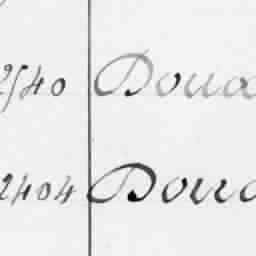 2540 Doua
2404 Doua